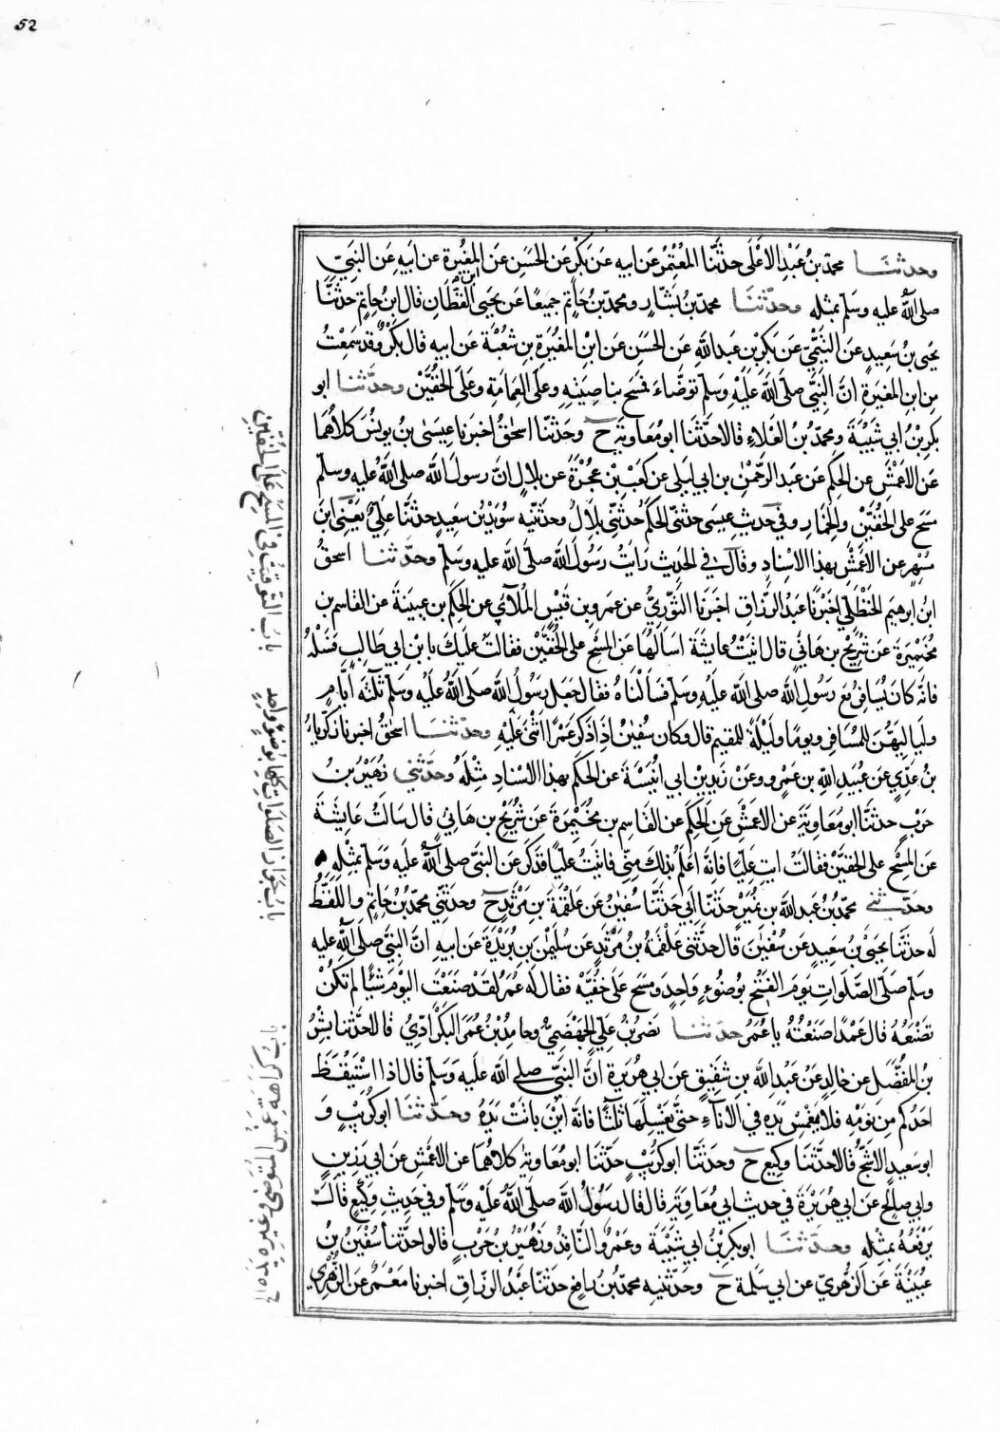 52
وحدثنا محمد بن عبد الاعلى حدثنا المعتمر عن ابيه عن بكر عن الحسن عن ابن المغيرة عن ابيه عن النبي
صلى الله عليه وسلم بمثله وحدثنا محمد بن بشار ومحمد بن حاتم جميعا عن يحيى القطان قال ابن حاتم حدثنا
يحيى بن سعيد عن التيمي عن بكر بن عبد الله عن الحسن عن ابن المغيرة بن شعبة عن ابيه قال بكر وقد سمعت
من ابن المغيرة ان النبي صلى الله عليه وسلم توضاء فمسح بناصيته وعلى العمامة وعلى الخفين وحدثنا ابو
بكر بن ابي شيبة ومحمد بن العلاء قالا حدثنا ابو معاوية ح وحدثنا اسحق اخبرنا عيسى بن يونس كلاهما
عن الاعمش عن الحكم عن عبد الرحمن بن ابي ليلى عن كعب بن عجرة عن بلال ان رسول الله صلى الله عليه وسلم
مسح على الخفين والخمار وفي حديث عيسى حدثني الحكم حدثني بلال وحدثنيه سويد بن سعيد حدثنا علي يعني ابن
مسهر عن الاعمش بهذا الاسناد وقال في الحديث رايت رسول الله صلى الله عليه وسلم وحدثنا اسحق
ابن ابرهيم الحنظلي اخبرنا عبد الرزاق اخبرنا الثوري عن عمرو بن قيس الملآئي عن الحكم بن عيينة عن القاسم بن
مخيمرة عن شريح بن هانئ قال اتيت عايشة اسالها عن المسح على الخفين فقالت عليك بابن ابي طالب فسله
فانه كان يسافر مع رسول الله صلى الله عليه وسلم فسالناه فقال جعل رسول الله صلى الله عليه وسلم ثلثة ايام
ولياليهن للمسافر ويوما وليلة للمقيم قال وكان سفين اذا ذكر عمرا اثنى عليه وحدثنا اسحق اخبرنا زكرياء
بن عدي عن عبيد الله بن عمرو عن زيد بن ابي انيسة عن الحكم بهذا الاسناد مثله وحدثني زهير بن
حرب حدثنا ابو معاوية عن الاعمش عن الحكم عن القاسم بن مخيمرة عن شريح بن هانئ قال سالت عايشة
عن المسح على الخفين فقالت ايت عليا فانه اعلم بذلك مني فاتيت عليا فذكر عن النبي صلى الله عليه وسلم بمثله
وحدثني محمد بن عبد الله بن نمير حدثنا ابي حدثنا سفين عن علقمة بن مرثد ح وحدثني محمد بن حاتم واللفظ
له حدثنا يحيى بن سعيد عن سفين قال حدثني علقمة بن مرثد عن سليمن بن بريدة عن ابيه ان النبي صلى الله عليه
وسلم صلى الصلوات يوم الفتح بوضوء واحد ومسح على خفيه فقال له عمر لقد صنعت اليوم شيئا لم تكن
تصنعه قال عمدا صنعته يا عمر حدثنا نصر بن علي الجهضمي وحامد بن عمر البكراوي قالا حدثنا بشر
بن المفضل عن خالد عن عبد الله بن شقيق عن ابي هريرة ان النبي صلى الله عليه وسلم قال اذا استيقظ
احدكم من نومه فلا يغمس يده في الاناء حتى يغسلها ثلثا فانه اين باتت يده وحدثنا ابو كريب و
ابو سعيد الاشج قالا حدثنا وكيع ح وحدثنا ابو كريب حدثنا ابو معاوية كلاهما عن الاعمش عن ابي رزين
وابي صالح عن ابي هريرة في حديث ابي معاوية قال قال رسول الله صلى الله عليه وسلم وفي حديث وكيع قال
يرفعه بمثله وحدثنا ابو بكر بن ابي شيبة وعمرو الناقد وزهير بن حرب قالوا حدثنا سفين بن
عيينة عن الزهري عن ابي سلمة ح وحدثنيه محمد بن رافع حدثنا عبد الرزاق اخبرنا معمر عن الزهري
باب التوقيت في المسح على الخفين
باب جواز الصلوات كلها بوضوء واحد